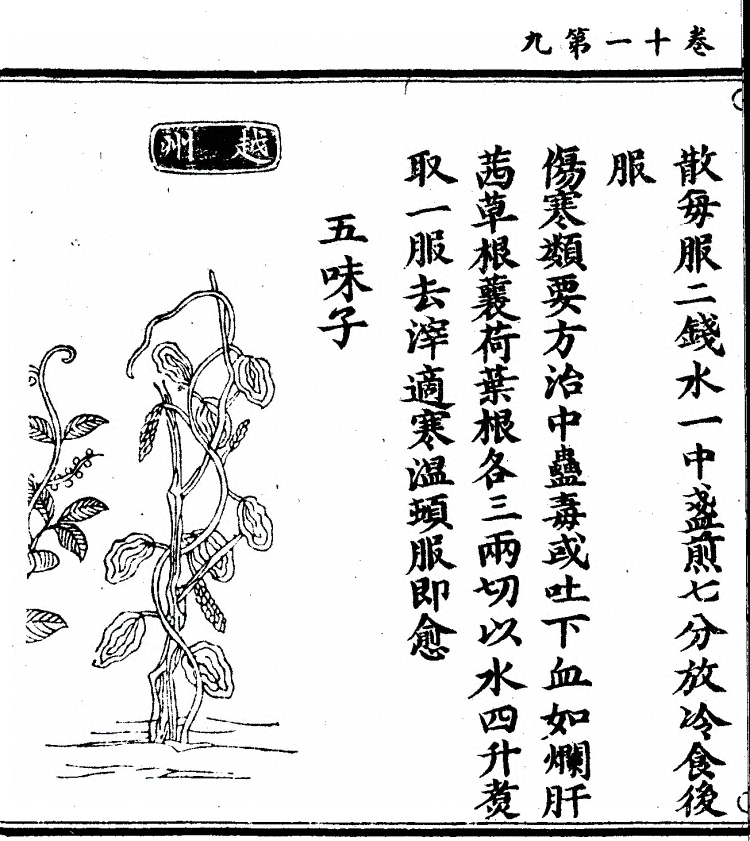 卷十一第九
散每服二錢水一中盞煎七分放冷食後
服
傷寒類要方治中蠱毒或吐下血如爛肝
茜草根蘘荷葉根各三兩切以水四升煑
取一服去滓適寒溫頓服即愈
五味子
越州